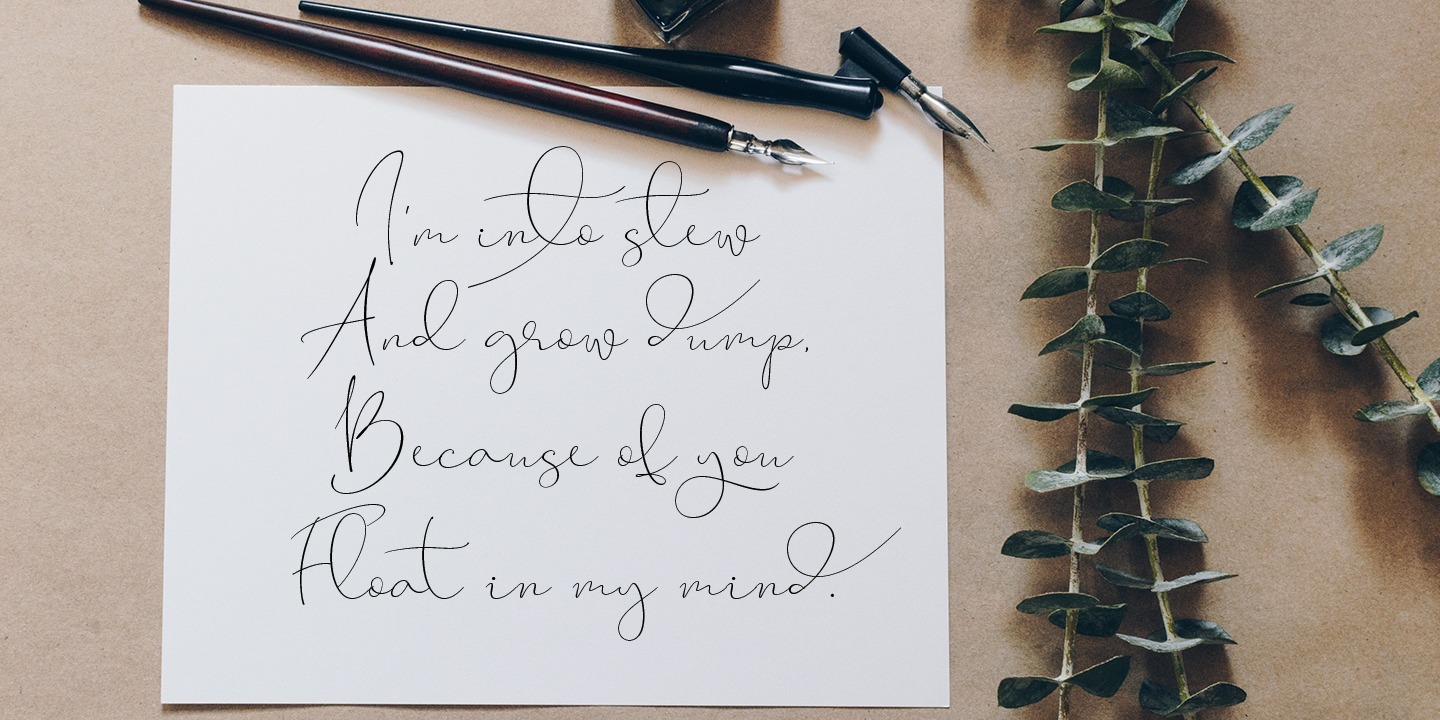 I'm into stew
And grow dump,
Because of you
Float in my mind.